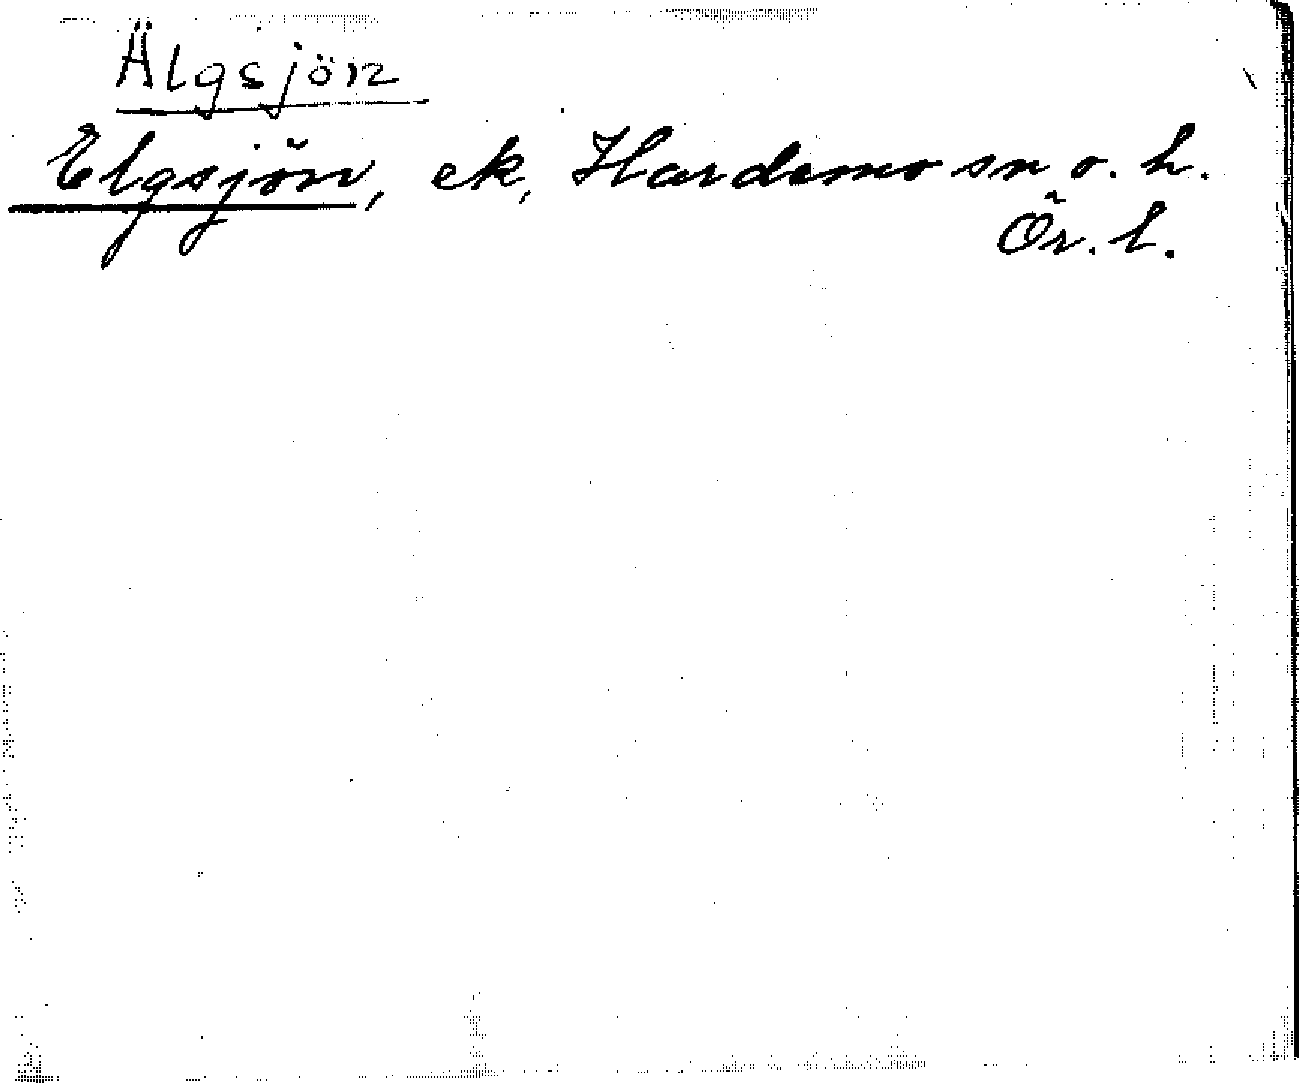 Älgsjön
Elgsjön, ek, Hardemo sn o. h.
Ör. l.